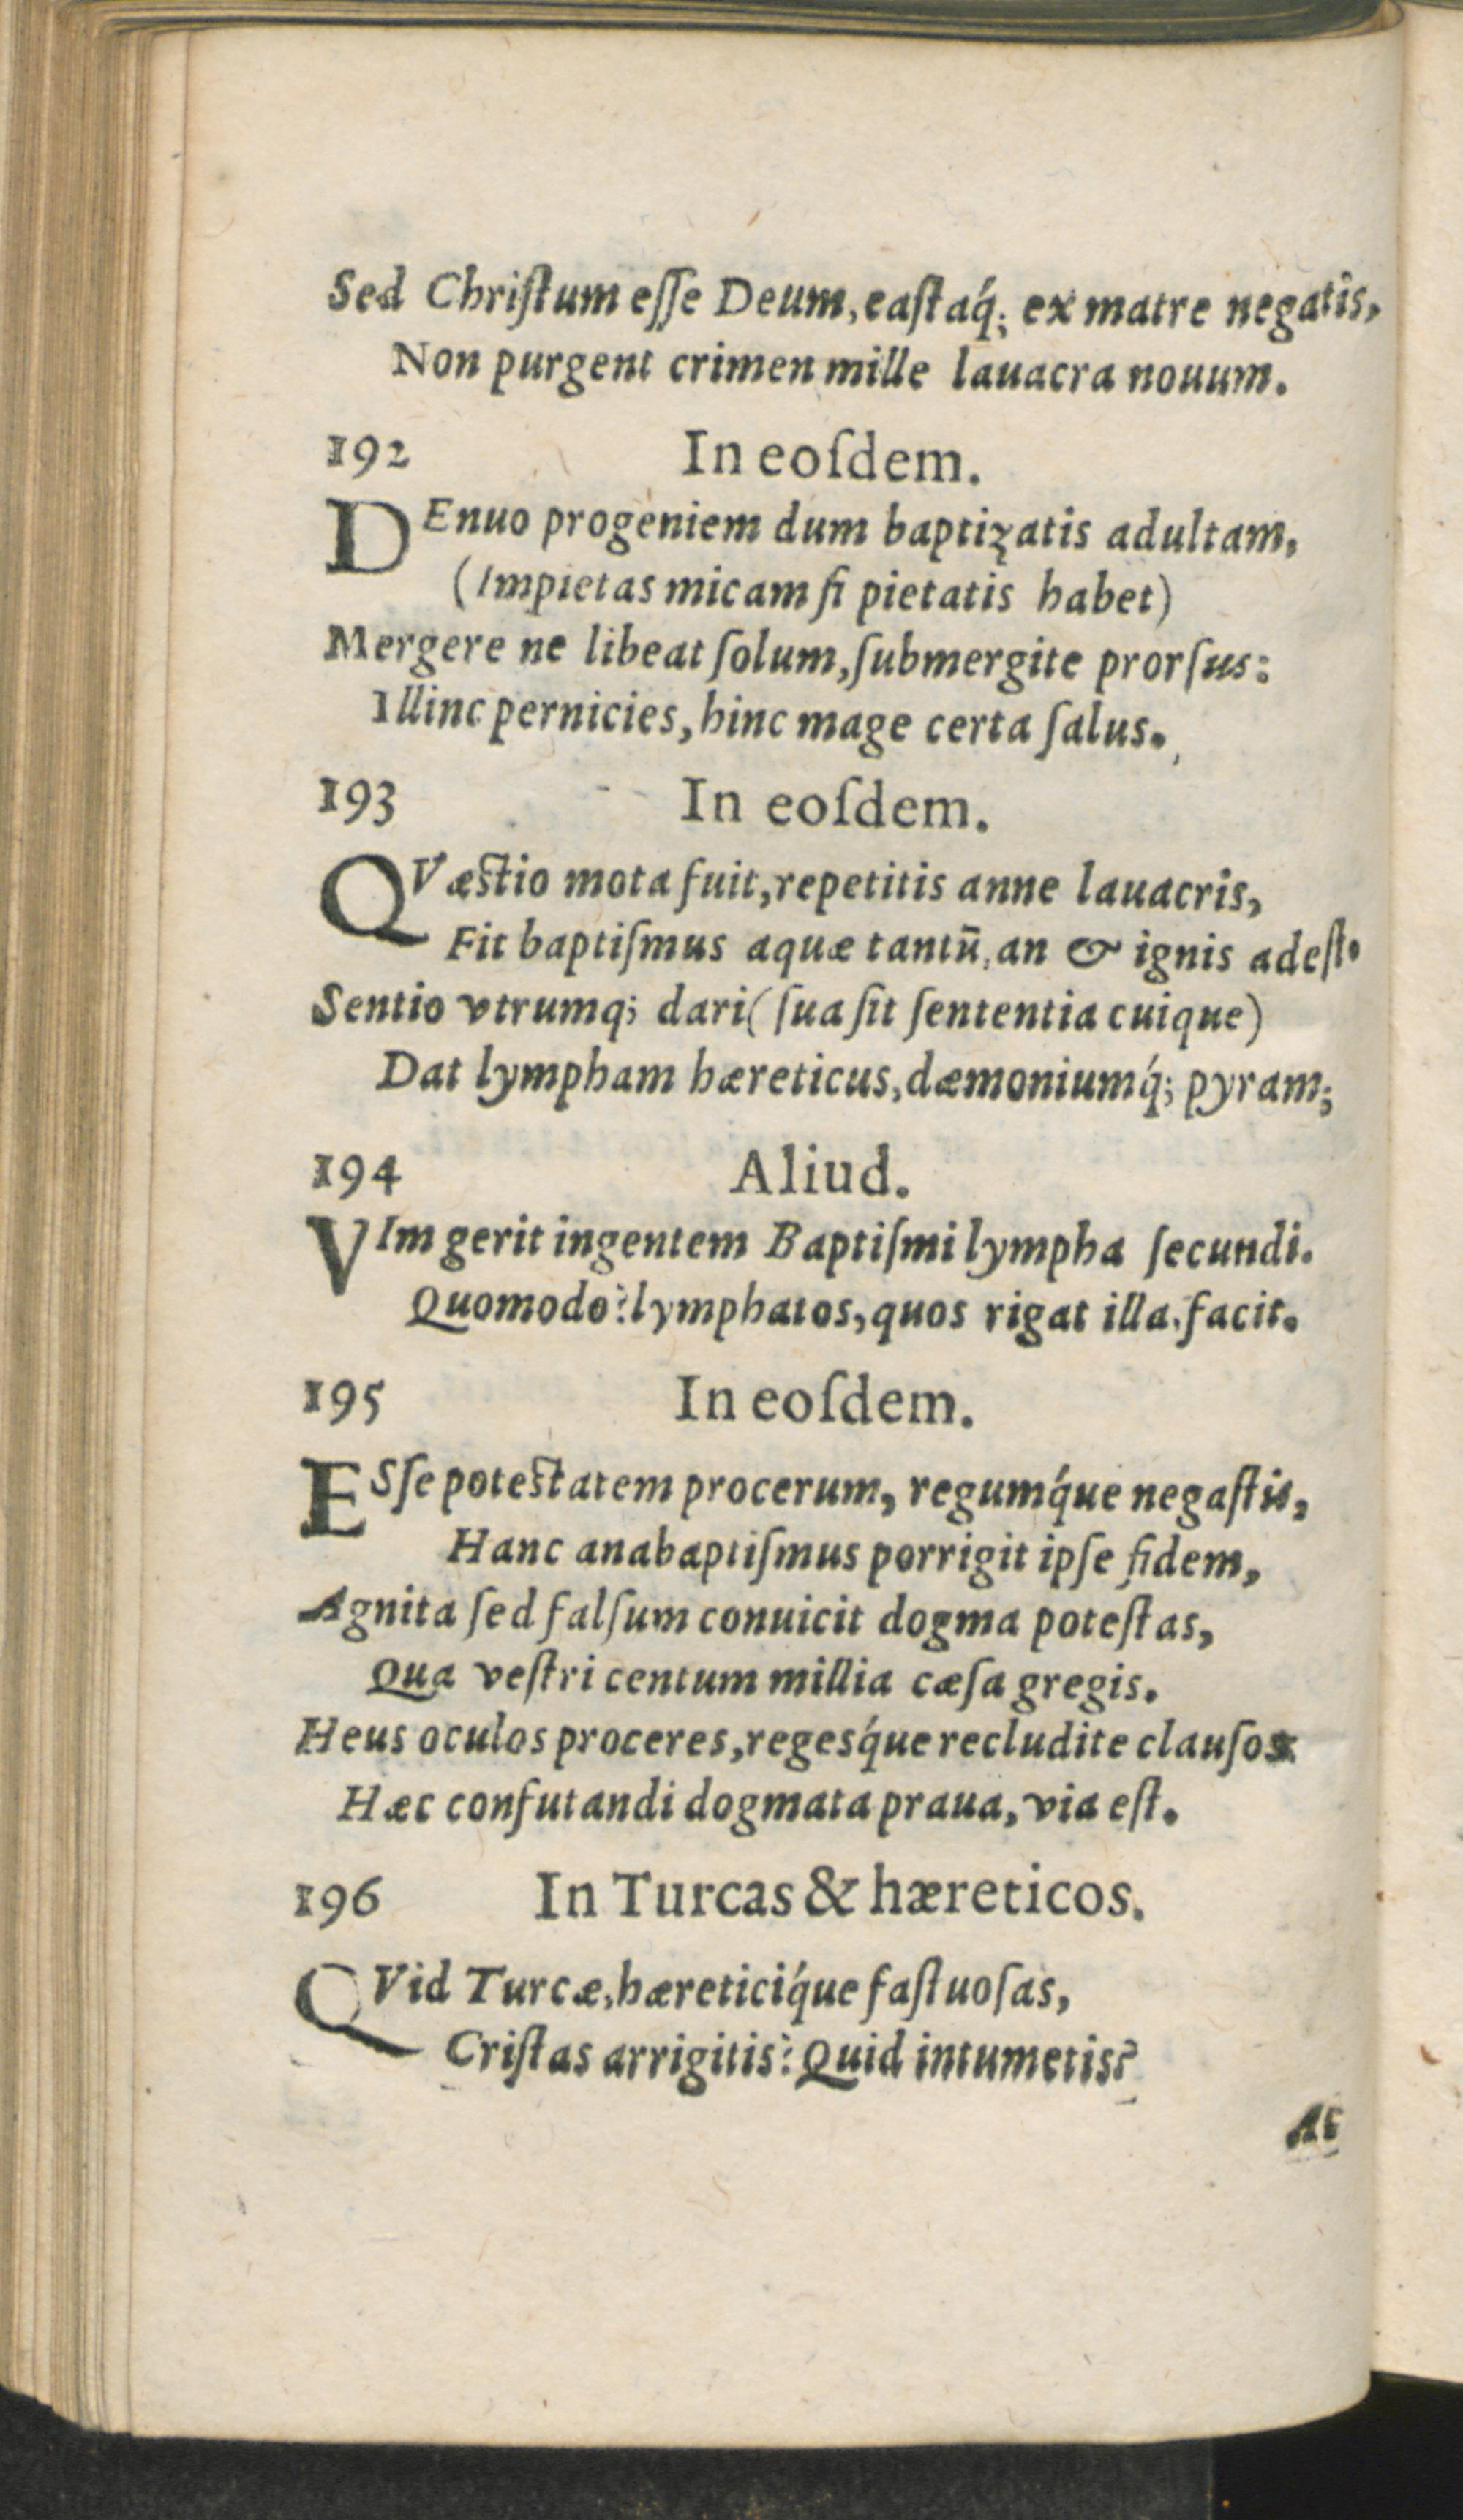 Sed Chriſtum eſſe Deum, eaſtaq́; ex matre negatis,
Non purgent crimen mille lauacra nouum.
192 In eoſdem.
DEnuo progeniem dum baptizatis adultam,
(Impietas micam ſi pietatis habet)
Mergere ne libeat ſolum, ſubmergite prorſus:
Illinc pernicies, hinc mage certa ſalus.
193 In eoſdem.
QVæstio mota fuit, repetitis anne lauacris,
Fit baptiſmus aquæ tantū, an & ignis adeſt.
Sentio vtrumq; dari (ſua ſit ſententia cuique)
Dat lympham hæreticus, dæmoniumq́; pyram;
194 Aliud.
VIm gerit ingentem Baptiſmi lympha ſecundi.
Quomodo? lymphatos, quos rigat illa, facit.
195 In eoſdem.
ESſe potestatem procerum, regumq́ue negaſtis,
Hanc anabaptiſmus porrigit ipſe fidem,
Agnita ſed falſum conuicit dogma poteſtas,
Qua veſtri centum millia cæſa gregis.
Heus oculos proceres, regesq́ue recludite clauſos:
Hæc confutandi dogmata praua, via eſt.
196 In Turcas & hæreticos.
QVid Turcæ, hæreticiq́ue faſtuoſas,
Criſtas arrigitis? Quid intumetis?
At